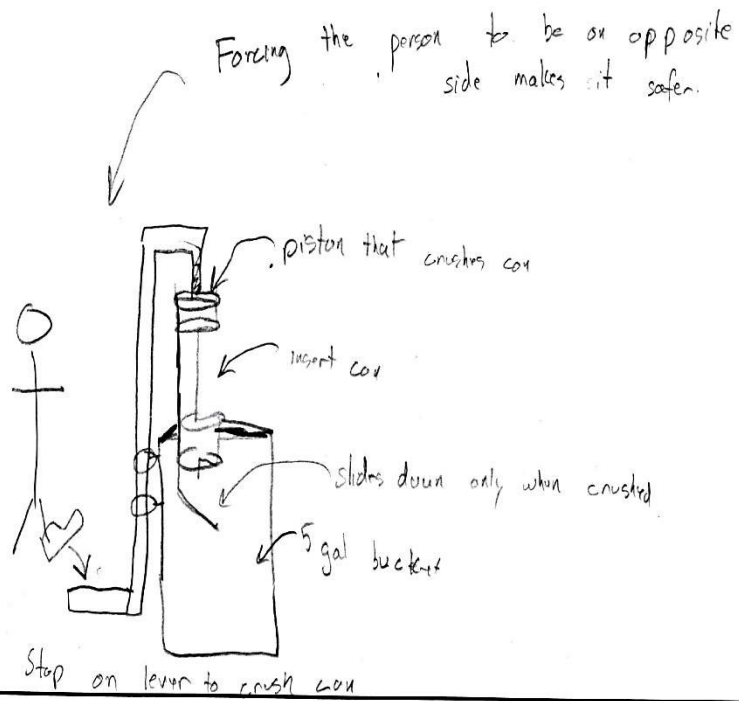 Forcing the person to be on opposite
side makes it safer.
piston that crushes can
insert can
slides down only when crushed
5 gal bucket
Step on lever to crush can